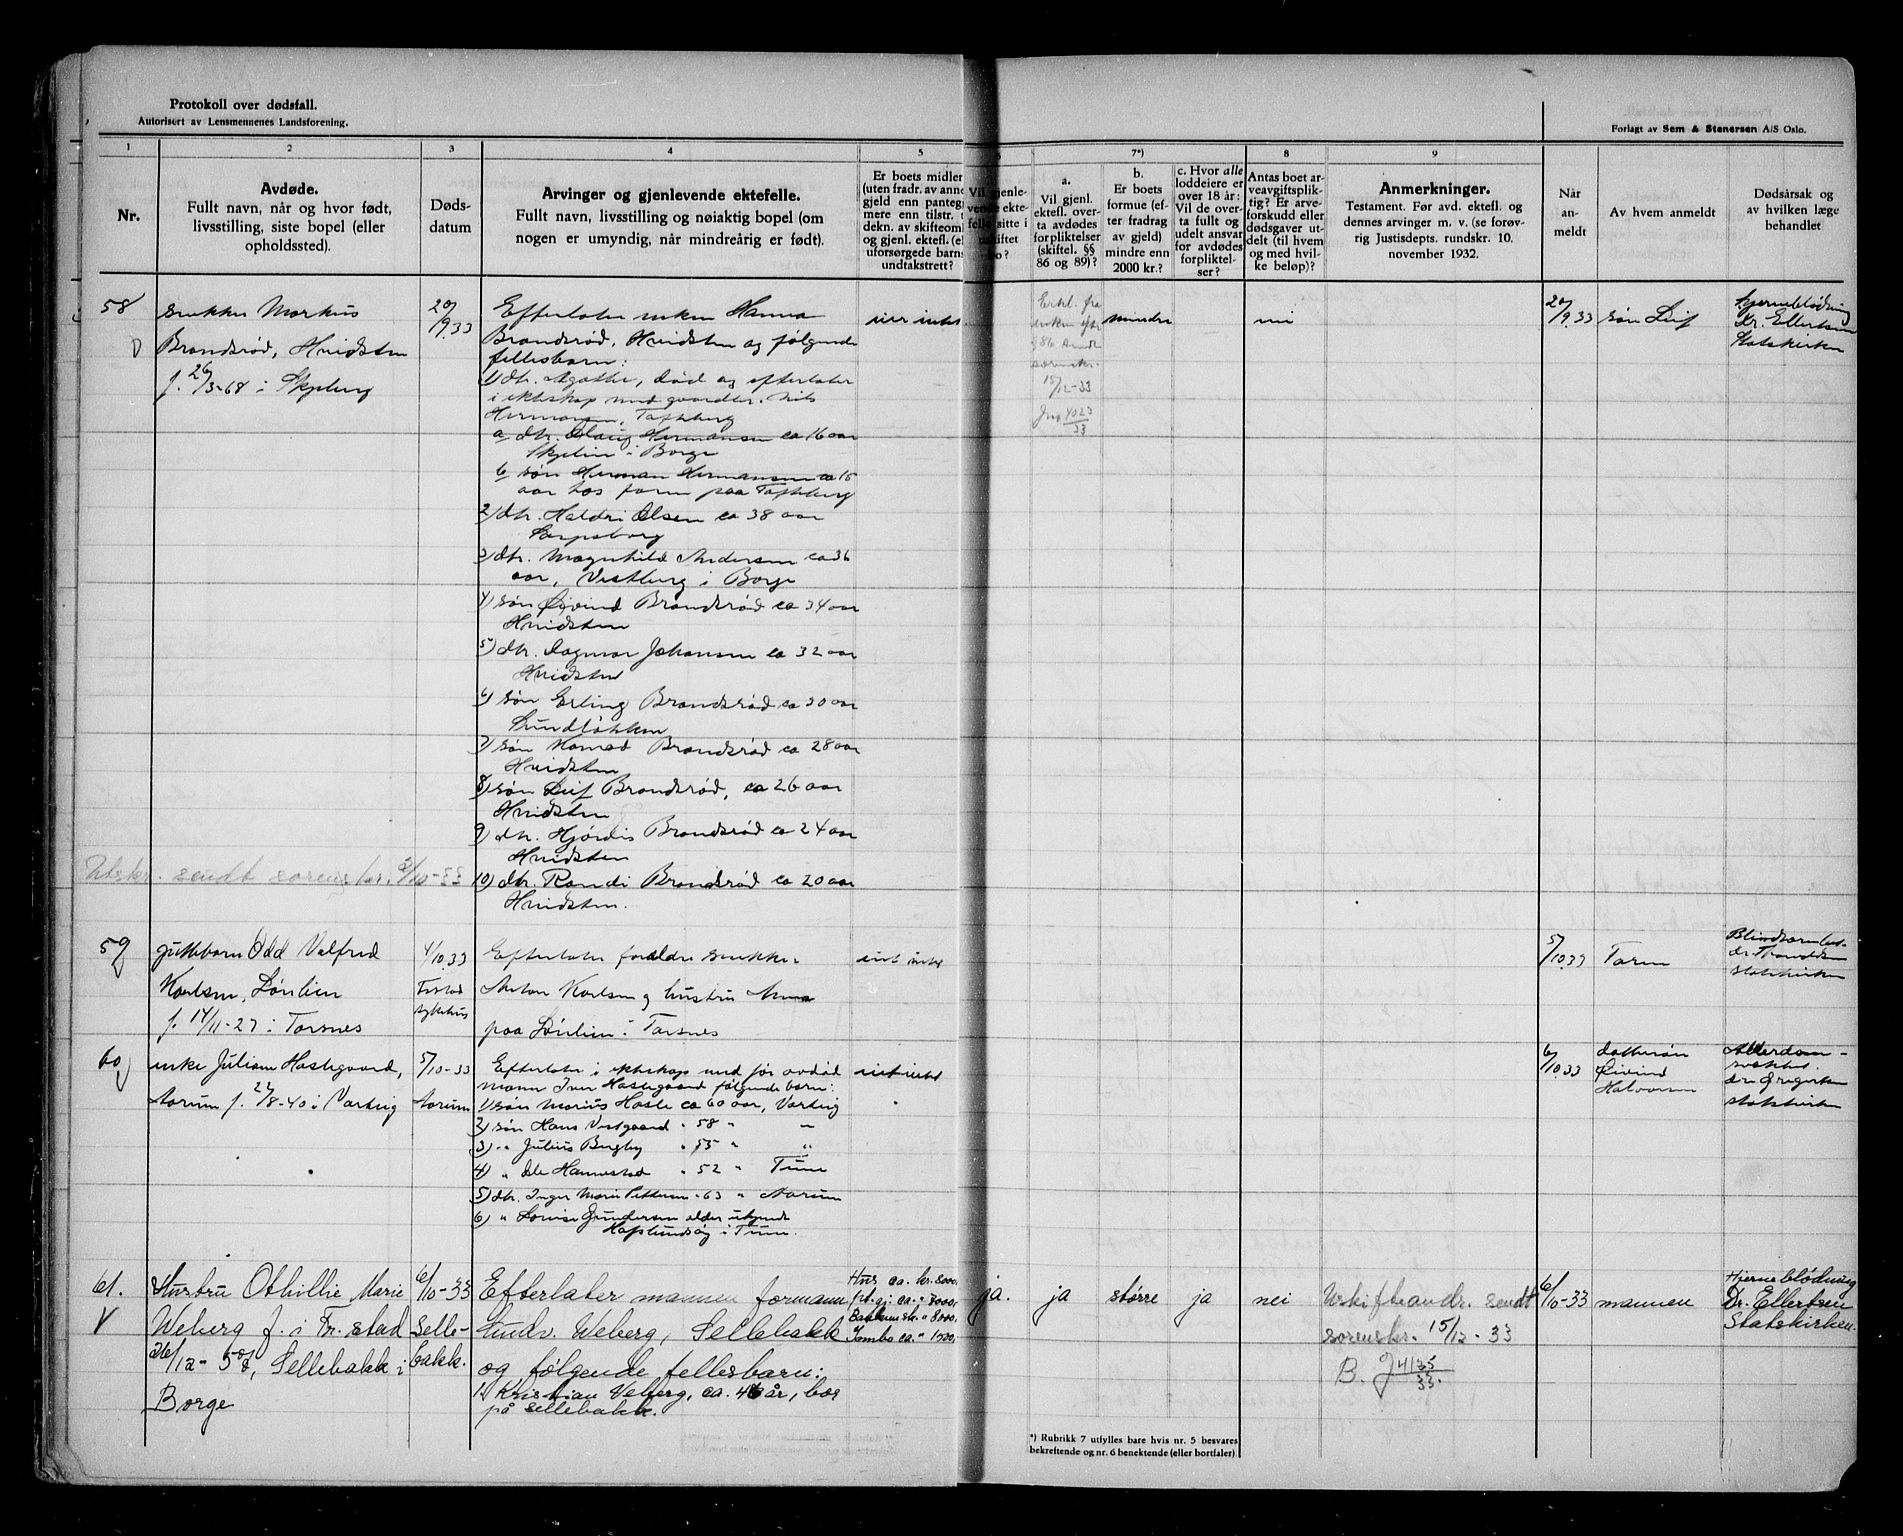 Protokoll over dødsfall.
Autorisert av Lensmennenes Landsforening.
Forlagt av Sem & Stenersen A/S Oslo.
1 2 3 4 5 6 7*) 8 9
Nr.
Avdøde.
Fullt navn, når og hvor født,
livsstilling, siste bopel (eller
opholdssted).
Døds-
datum
Arvinger og gjenlevende ektefelle.
Fullt navn, livsstilling og nøiaktig bopel (om
nogen er umyndig, når mindreårig er født).
Er boets midler
(uten fradr. av anne
gjeld enn pantegj
mere enn tilstr. t
dekn. av skifteom
og gjenl. ektefl. (el
uforsørgede barns
undtakstrett?
Vil gjenle-
vende ekte-
felle sitte i
uskiftet
bo?
a.
Vil gjenl.
ektefl. over-
ta avdødes
forpliktelser
(skiftel. §§
86 og 89)?
b.
Er boets
formue (ef-
ter fradrag
av gjeld)
mindre enn
2000 kr.?
c. Hvor alle
loddeiere er
over 18 år:
Vil de over-
ta fullt og
udelt ansvar
for avdødes
forpliktel-
ser?
Antas boet ar-
veavgiftsplik-
tig? Er arve-
forskudd eller
dødsgaver ut-
delt (til hvem
og med hvil-
ke beløp)?
Anmerkninger.
Testament. Før avd. ektefl. og
dennes arvinger m. v. (se forøv-
rig Justisdepts. rundskr. 10.
november 1932.
Når
an-
meldt
Av hvem anmeldt
Dødsårsak og
av hvilken læge
behandlet
58
snekker Markus
Brandsrød, Hvidsten
f. 26/3-68 i Skjeberg
20/9.33
Efterlater enken Hanna
Brandsrød, Hvidsten og følgende
fellesbarn:
1) dtr. Agathe, død og efterlater
i ekteskap med gaardbr. Nils
Hermansen, Tofteberg
a dtr. Hermansen ca 16 aar
i Borge
b søn Herman Hermansen ca 15
aar hos faren paa Tofteberg
2) dtr. Haldri Olsen ca 38 aar
Sarpsborg
3) dtr. Magnhild Andersen ca 36
aar, Vestberg i Borge
4) søn Øivind Brandsrød ca 34 aar
Hvidsten
5) dtr. Dagmar Johansen ca 32 aar
Hvidsten
6) søn Erling Brandsrød ca 30 aar
Lundløkken
7) søn Konrad Brandsrød ca 28 aar
Hvidsten
8) søn Leif Brandsrød, ca 26 aar
Hvidsten
9) dtr. Hjørdis Brandsrød ca 24 aar
Hvidsten
10) dtr. Randi Brandsrød ca 20 aar
Hvidsten.
Erkl. fra
enken efter
§ 86 sendt
sorenskr.
15/12-33
Jnr 4023/33
mindre
nei
20/9.33
søn Leif
Hjerneblødning
Dr. Ellertsen
Statskirken
Utskr. sendt sorenskr. 2/10-33
59
guttebarn Odd Valfred
Karlsen, Lønlien
f. 14/11-27 i Torsnes
4/10.33
Fr.stad
sykehus
Efterlater foreldre snekker
Anton Karlsen og hustru Anna
paa Lønlien i Torsnes
intet
5/10.33
Faren
Blindtarmbet.
dr. Trondsen
statskirken
60
enke Juliane Haslegaard,
Aarum f. 27/8-40 i Varteig
5/10-33
Aarum
Efterlater i ekteskap med før avdød
mann Iver Haslegaard følgende barn:
1) søn Marius Hasle ca 60 aar, Varteig
2) søn Hans Vestgaard " 58 " "
3) " Julius Bergby " 55 " "
4) " Ole Hannestad " 52 " Tune
5) dtr. Inger Marie Pettersen " 63 " Aarum
6) " Lovise Gundersen alder ukjendt
Hafslundsøy i Tune.
6/10.33
dattersøn
Øivind
Halvorsen
Alderdom-
svakhet
dr. Gregersen
statskirken
61.
V
Hustru Othillie Marie
Weberg f. i Fr.stad
26/12-58, Sellebakk i
Borge
6/10-33
Selle-
bakk.
Efterlater mannen formann
Ludv. Weberg, Sellebakk
og følgende fellesbarn:
1) Kristian Veberg, ca. 46 år, boe
på sellebakk.
Hus ca. kr. 8000,
pt.gj. ca. " 3000,
" 8000,
Innbo ca. " 1000,
ja.
ja
større
ja
nei
Urskifteandr. sendt
sorenskr. 15/12-33
B. J 4135/33.
6/10-33
mannen
Hjerneblødning
Dr. Ellertsen
Statskirken.
*) Rubrikk 7 utfylles bare hvis nr. 5 besvares
bekreftende og nr. 6 benektende (eller bortfaler).